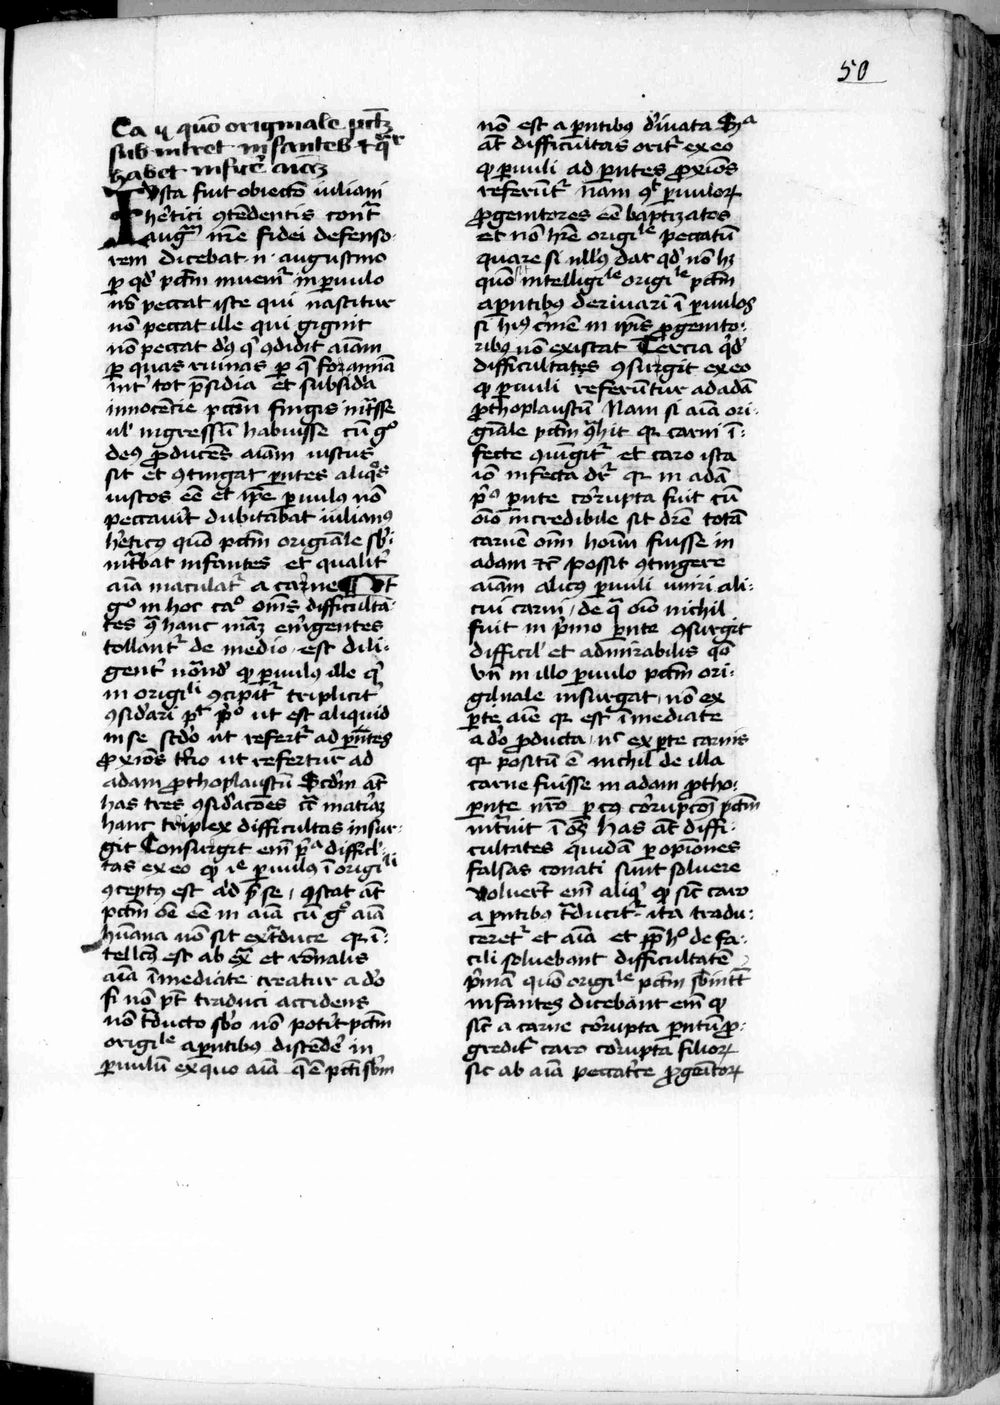 50
Ca ij quō originale pctꝫ
sub intret infantes ⁊ qr
habet inficē aīaꝫ
Ista fuit obiectō iuliani
hētici ꝯtēdentis cont̄
augꝫ nr̄e fidei defenso-
rem dicebat n̄ augustino
ꝑ qd̓ pctm̄ inuenit̓ in ꝑuulo
nō peccat iste qui nascitur
nō peccat ille qui gignit
nō peccat dꝰ qͥ ꝯdidit aīam
ꝑ quas rimas ꝑ qͣ foramīa
int̓ tot p̄sidia et subsidia
innocēcie pctm̄ fingis int̄sse
ul̓ ingressū habuisse cū gͦ
deꝰ ꝓducēs aīam iustus
sit et ꝯtingat ꝑntes aliqͦs
iustos eē et ip̄e ꝑuulꝰ nō
peccauit dubitabat iulianꝰ
hēticꝰ quō pctm̄ origiale sb̓-
int̄bat infantes et qualit̓
aīa maculat̓ a carne Ut
gͦ in hoc caͦ om̄s difficultā-
tes qͣ hanc māꝫ em̓gentes
tollant̓ de medio est dili-
gent̓ notand̓ ꝙ ꝑuulꝰ ille qͥ
in origiˡⁱ ꝯcipit̓ triplicit̓
ꝯsid̓ari pt̄ pͦ ut est aliquid
in se scdo ut refert̓ ad ꝑntes
ꝓxiōs tͦ̓io ut refertur ad
adam ꝓthoplaustū Scdm̄ āt
has tres ꝯsid̓acōes cͣ mat̓iaꝫ
hanc triplex difficultas insur-
git Consurgit em̄ pͣ difficl̓-
tas ex eo ꝙ iᵉ ꝑuulꝰ ī origiˡⁱ
ꝯceptꝰ est ad s̄e ꝯstat āt
pctm̄ oē eē in aīa cū gͦ aīa
hūana nō sit ext̄duce qr ī-
tellcꝰ est ab exͣ et rōnalis
aīa īmediate creatur a do
si nō pt̄ traduci accidens
nō t̄ducto sb̓o nō potit̓ pctm̄
origiˡᵉ a ꝑntibꝰ discēde̓ in
ꝑuulū ex quo aīa q̄ ē pcti sb̓m
nō est a ꝑntibꝰ d̓iuata Sͣ
āt difficultas orit̓ ex eo
ꝙ ꝑuuli ad ꝑntes ꝓxiōs
referūt̓ nam ꝯt̓ ꝑuuloꝝ
ꝓgenitores eē baptizatos
et nō hr̄e origiˡᵉ peccatū
quare si nullꝰ dat qd̓ nō hꝫ
quō intelligiˡᵉ origiˡᵉ pctm̄
a ꝑntibꝰ deriuari ī ꝑuulos
si hiꝰ c̓mē in ip̄is ꝓgenito-
ribꝰ nō existat Tercia qͥd̓
difficultates ꝯsurgit ex eo
ꝙ ꝑuuli referūtur ad adā
ꝓthoplaustū Nam si aīa ori-
giale pctm̄ qͣhit qr carni ī-
fecte ꝯiūgit̓ et caro ista
iō infecta dr̄ qr in adā
pͦ ꝑnte corrupta fuit cū
oīo incredibile sit dr̄e totā
carnē om̄ hoīm fuisse in
adam ⁊c̄ possit ꝯtingere
aīam alicꝰ ꝑuuli uniri ali-
cui carni de qͣ oīo nichil
fuit in p̓mo ꝑnte ꝯsurgit
difficil̓ et admirabilis qō
vn̄ in illo ꝑuulo pctm̄ ori-
ginale insurgat nō ex
ꝑte aīe qr est īmediate
a do ꝓducta nͨ ex ꝑte carnis
qr positū ē nichil de illa
carne fuisse in adam ꝓtho-
ꝑnte nr̄o ꝑ cꝰ corrupcōꝫ pctm̄
intͣuit ī oēs Has āt diffi-
cultates quidam ꝑ opiniones
falsas conati sunt soluere
Voluer̄t em̄ aliqͥ ꝙ sic̄ caro
a ꝑntibꝰ t̄ducit̓ ita tradu-
ceret̓ et aīa et ꝓp̄ hͦ de fa-
cili soluebant difficultatē
p̓mā quō origiˡᵉ pctm̄ sb̓int̄t
infantes dicebant em̄ ꝙ
sic̄ a carne corrupta ꝑntū ꝓ-
gredit̓ caro corrupta filioꝝ
sic ab aīa peccat̓ce ꝓgeītoꝝ